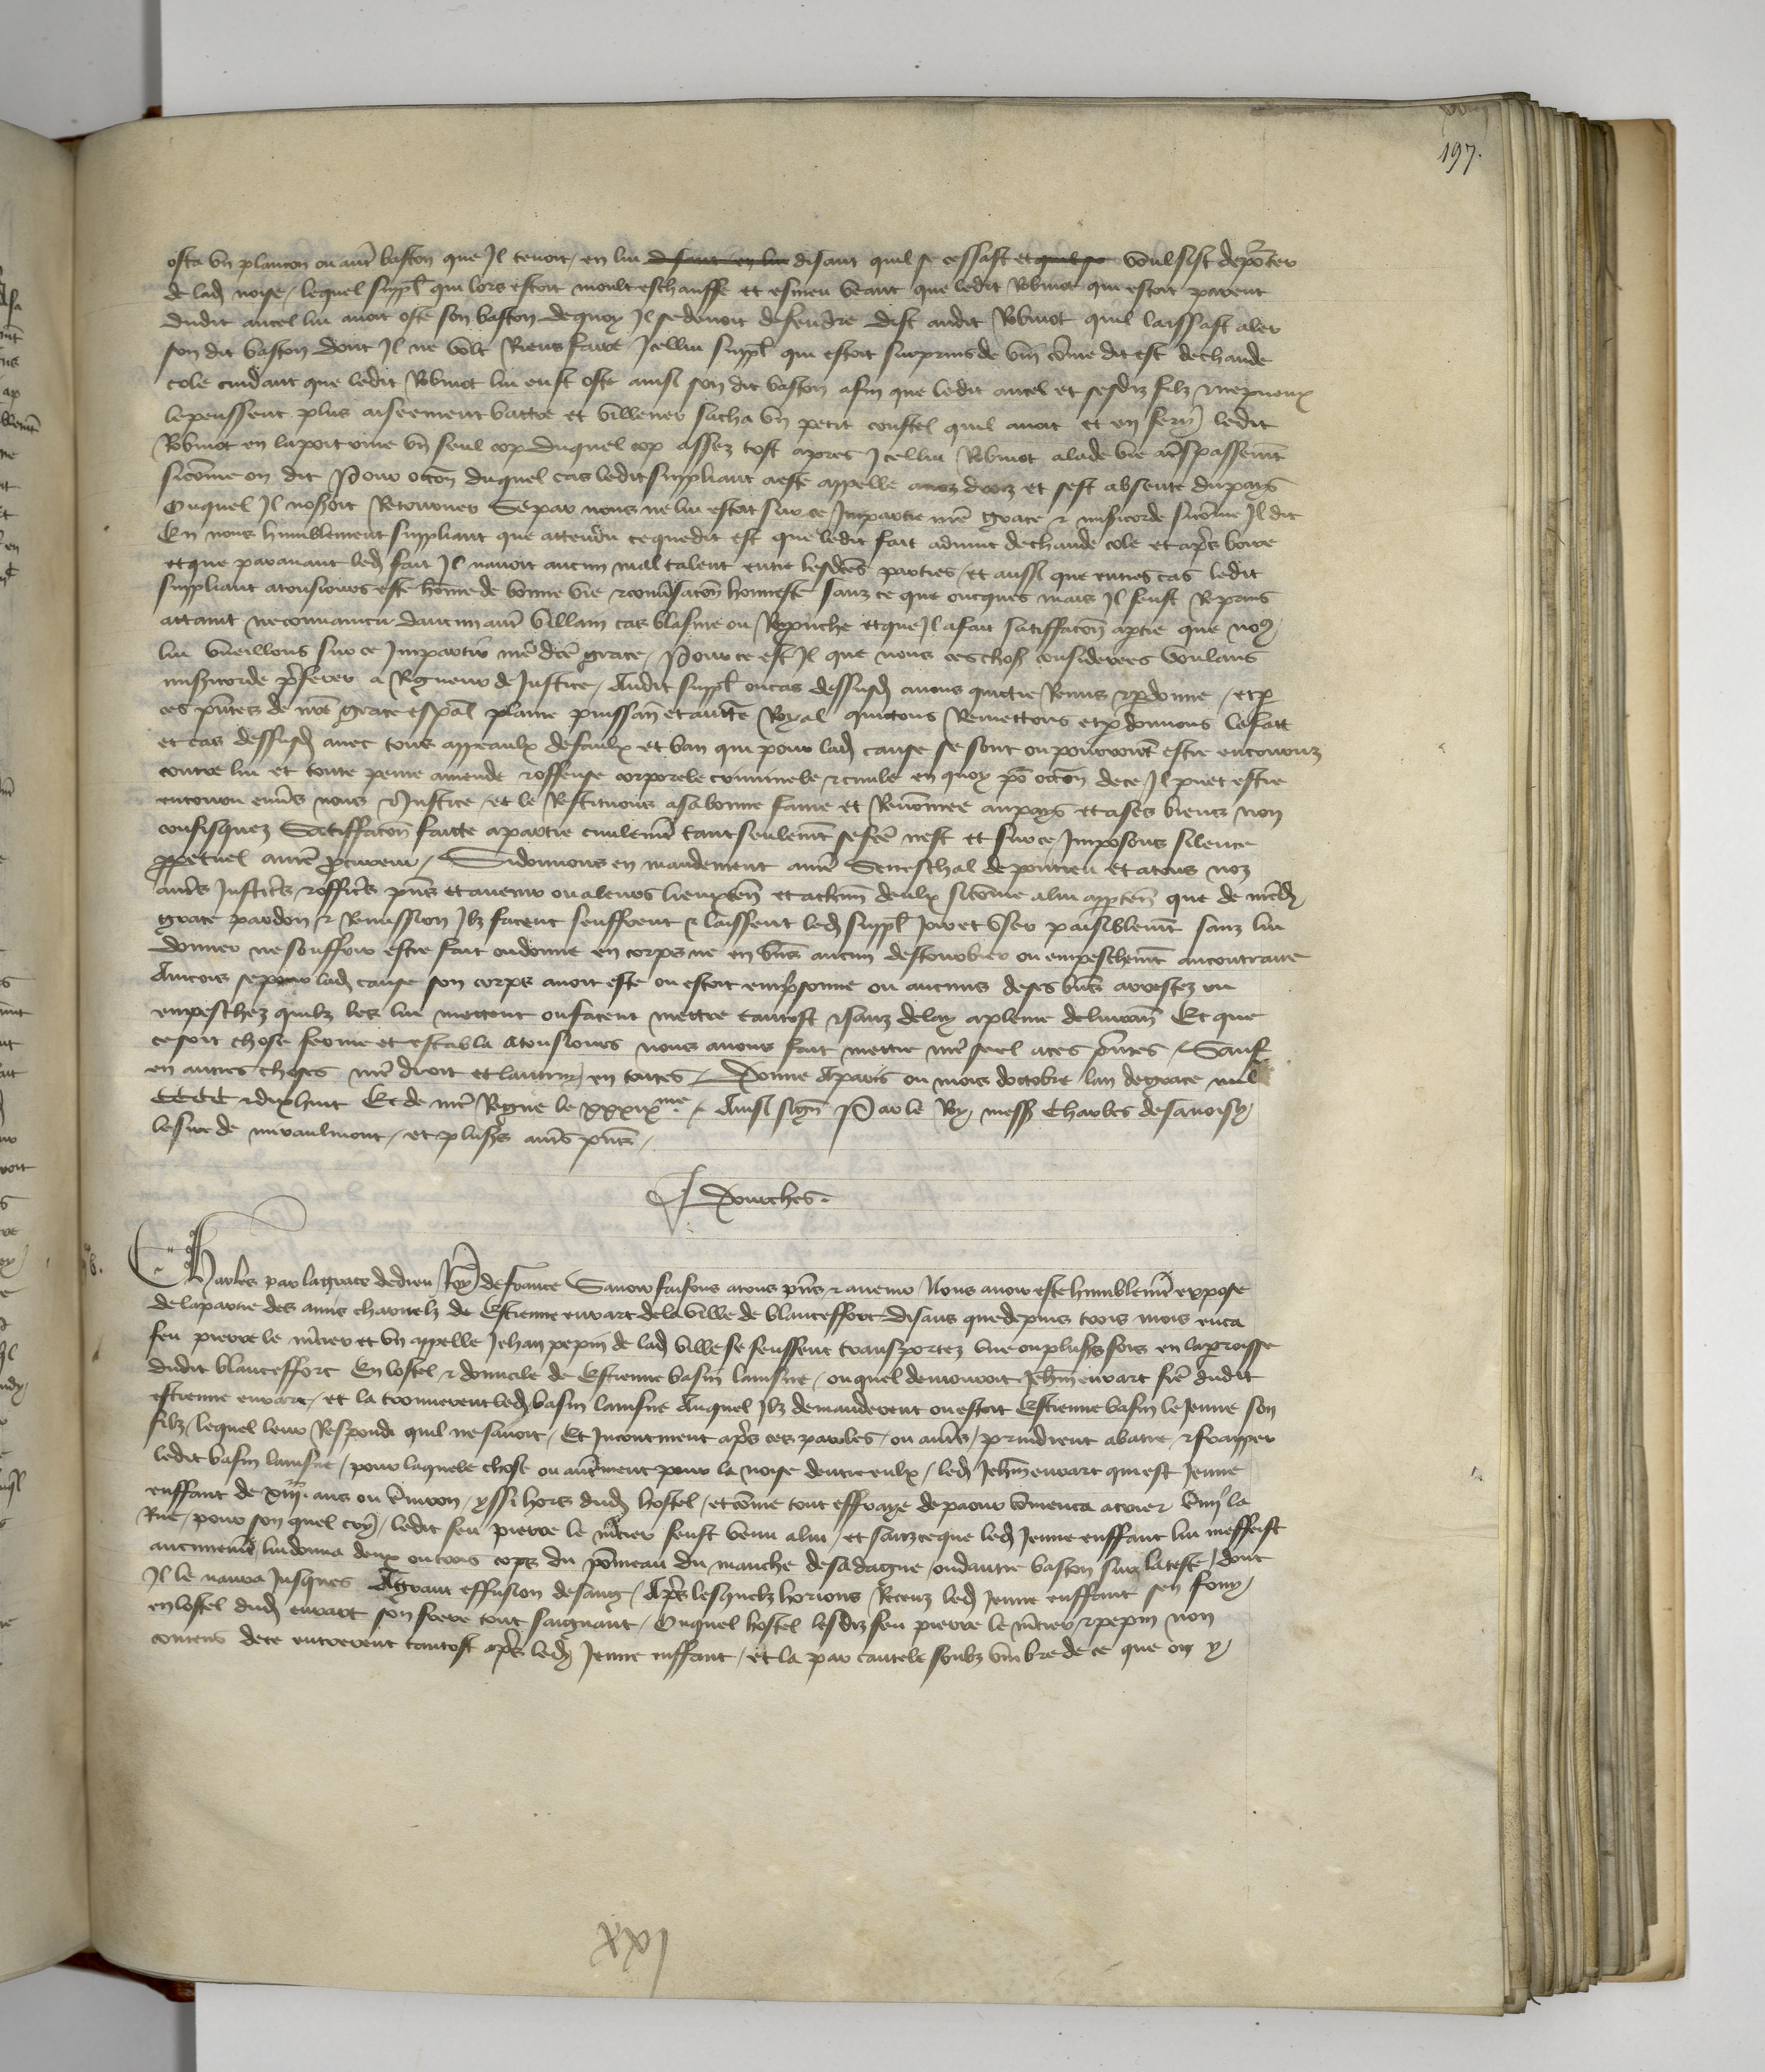 197.
osta un plancon ou autre baston que Il tenoit, en lui disant en lui disant quil se cessast et quil se voulsist deporter
de lad noise, lequel suppl qui lors estoit moult eschauffe et esmeu veant que ledit Robinot qui estoit parent
dudit ancel lui avoit oste son baston dequoy Il se devoit defendre dist audit Robinot quil laissast aler
son dit baston dont Il ne volt Riens faire Icellui suppl qui estoit surprins de vin come dit est de chaude
cole cuidant que ledit Robinot lui eust oste ainsi son dit baston afin que ledit ancel et sesdiz filz & nepveux
le peussent plus aiseement batre et villener sacha un petit coustel quil avoit et en fery ledit
Robinot en la poitrine un seul cop duquel cop assez tost apres Icellui Robinot ala de vie a trespassement
sicome on dit Pour occon duquel cas ledit suppliant a este appelle a noz droiz et sest absente du pays
Ouquel Il noseroit Retourner Se par nous ne lui estoit sur ce Impartie nre grace & misericorde sicome Il dit
En nous humblement suppliant que attendu ce que dit est que ledit fait advint de chaude cole et apres boire
et que paravant led fait Il navoit aucun mal talent entre lesdes parties, et aussi que en tres cas ledit
suppliant a tousiours este home de bonne vie & conversacon honneste sanz ce que oncques mais Il feust Reprins
attaint ne convaincu daucun autre villain cas blasme ou Reprouche et que Il a fait satiffacon a partie que nous
lui vueillons sur ce Impartir nre dce grace, Pour ce est Il que nous ces choses considerees voulans
misericorde preferer a Rigueur de Justice, Audit suppl ou cas dessusd avons quictie Remis & pardonne, et par
ces pntes de nre grace espal plaine puissan et aucte Royal quictons Remettons et pardonnons le fait
et cas dessusd avec tous appeaulx defaulx et ban qui pour lad cause se sont ou pourroient estre encourruz
contre lui et toute peine amende & offense corporele criminele & civile en quoy por occon de ce Il puet estre
encouru envs nous & Justice, et le Restituons a sa bonne fame et Renomee au pays et a ses biens non
confisquez Satiffacon faicte a partie civilemt tant seulemt se fce nest et sur ce Imposons silence
perpetuel a nre procureur, Si donnons en mandement a nre Seneschal de pontieu et a tous noz
autres Justiciers & officiers pns et avenir ou a leurs lieuxten et a chun deulx sicome a lui apparten que de nred
grace pardon & Remission Ilz facent seuffrent & laissent led suppl Joir et User paisiblemt sanz lui
donner ne souffrir estre fait ou donne en corps ne en biens aucun destourbier ou empeschemt au contraire
Aincois se pour lad cause son corps avoit este ou estoit emprisonne ou aucuns de ses biens arrestez ou
empeschez quilz les lui mettent ou facent mettre tantost & sanz delay a pleine delivran Et que
ce soit chose ferme et estable a tousiours nous avons fait mettre nre seel a ces pntes, Sauf
en autres choses nre droit et lautruy en toutes, Donne a paris ou mois doctobre lan de grace mil
CCCC & dix huit Et de nre Regne le xxxixme, Ainsi signe Par le Roy, messe Charles de savoisy,
le sire de miraulmont, et plusrs autres pns,
Dourches.
Charles par la grace de dieu Roy de france Savoir faisons a tous pns & avenir Nous avoir este humblemt expose
de la partie des amis charnelz de Estienne euvart de la ville de blanceffort disans que depuis trois mois enca
feu pierre le mercier et un appelle Jehan pepin de lad ville se feussent transportez une ou plusrs fois en la parroisse
dudit blanceffort En lostel & domicile de Estienne basin lainsne, ouquel demouroit Jehan euvart frere dudit
estienne euvart, et la trouverent led basin lainsne Auquel Ilz demanderent ou estoit Estienne basin le Jeune son
filz, lequel leur Respondi quil ne savoit, Et Incontinent apres ces paroles, ou autres, prindrent a batre, & frapper
ledit basin lainsne, pour laquele chose ou autrement pour la noise dentre eulx, led Jehan euvart qui est Jeune
enffant de xiiii ans ou environ, yssi hors dud hostel, et come tout effraye de paour comenca a crier Emy la
Rue, pour son quel cry, ledit feu pierre le mercier feust venu a lui, et sanz ce que led Jeune enffant lui meffeist
aucunement, lui donna deux ou trois cops du pomeau du manche de sa dague, ou dautre baston sur la teste, dont
Il le navra Jusques A grant effusion de sang, Apres lesquelz horions Receuz led Jeune enffant sen fouy
en lostel dud euvart son frere tout saignant, Ouquel hostel lesdiz feu pierre le mercier & pepin non
contens de ce entrerent tantost apres led Jeune enffant, et la par cautele soubz umbre de ce que on y
xxi